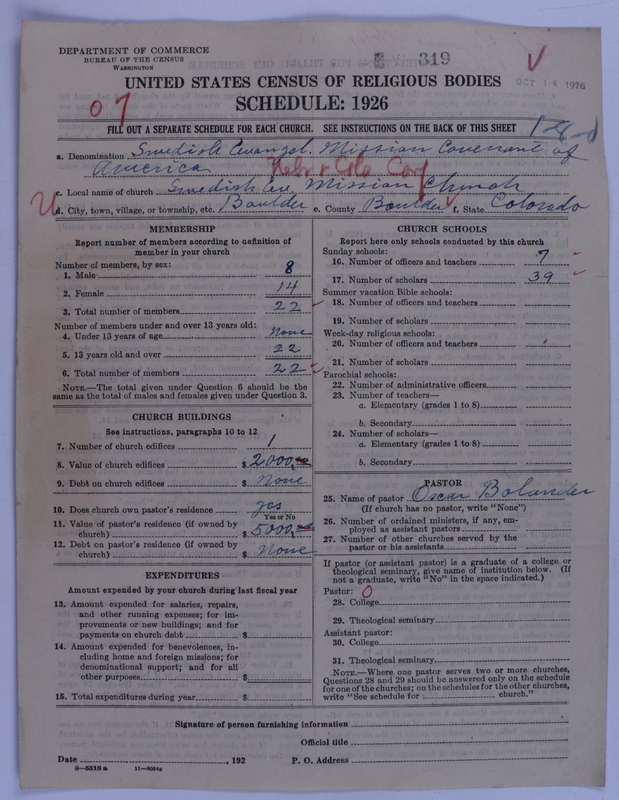 DEPARTMENT OF COMMERCE
BUREAU OF THE CENSUS
WASHINGTON
319
OCT 14 1926
UNITED STATES CENSUS OF RELIGIOUS BODIES
SCHEDULE: 1926
07
FILL OUT A SEPARATE SCHEDULE FOR EACH CHURCH. SEE INSTRUCTIONS ON THE BACK OF THIS SHEET
a. Denomination Swedish Evangel. Mission Covenant of
America
Nebr & Colo Conf
c. Local name of church Swedish Ev. Mission Church
d. City, town, village, or township, etc. Boulder e. County Boulder f. State Colorado
MEMBERSHIP
Report number of members according to definition of
member in your church
Number of members, by sex:
1. Male 8
2. Female 14
3. Total number of members 22
Number of members under and over 13 years old:
4. Under 13 years of age None
5. 13 years old and over 22
6. Total number of members 22
NOTE.—The total given under Question 6 should be the
same as the total of males and females given under Question 3.
CHURCH BUILDINGS
See instructions, paragraphs 10 to 12
7. Number of church edifices 1
8. Value of church edifices $ 2000
9. Debt on church edifices $ None
10. Does church own pastor's residence yes
Yes or No
11. Value of pastor's residence (if owned by
church) $ 5000
12. Debt on pastor's residence (if owned by
church) $ None
EXPENDITURES
Amount expended by your church during last fiscal year
13. Amount expended for salaries, repairs,
and other running expenses; for im-
provements or new buildings; and for
payments on church debt $
14. Amount expended for benevolences, in-
cluding home and foreign missions; for
denominational support; and for all
other purposes $
15. Total expenditures during year $
CHURCH SCHOOLS
Report here only schools conducted by this church
Sunday schools:
16. Number of officers and teachers 7
17. Number of scholars 39
Summer vacation Bible schools:
18. Number of officers and teachers
19. Number of scholars
Week-day religious schools:
20. Number of officers and teachers
21. Number of scholars
Parochial schools:
22. Number of administrative officers
23. Number of teachers—
a. Elementary (grades 1 to 8)
b. Secondary
24. Number of scholars—
a. Elementary (grades 1 to 8)
b. Secondary
PASTOR
25. Name of pastor Oscar Bolander
(If church has no pastor, write "None")
26. Number of ordained ministers, if any, em-
ployed as assistant pastors
27. Number of other churches served by the
pastor or his assistants
If pastor (or assistant pastor) is a graduate of a college or
theological seminary, give name of institution below. (If
not a graduate, write "No" in the space indicated.)
Pastor: 0
28. College
29. Theological seminary
Assistant pastor:
30. College
31. Theological seminary
NOTE.—Where one pastor serves two or more churches,
Questions 28 and 29 should be answered only on the schedule
for one of the churches; on the schedules for the other churches,
write "See schedule for church."
Signature of person furnishing information
Official title
Date , 192 P. O. Address
8—5518a